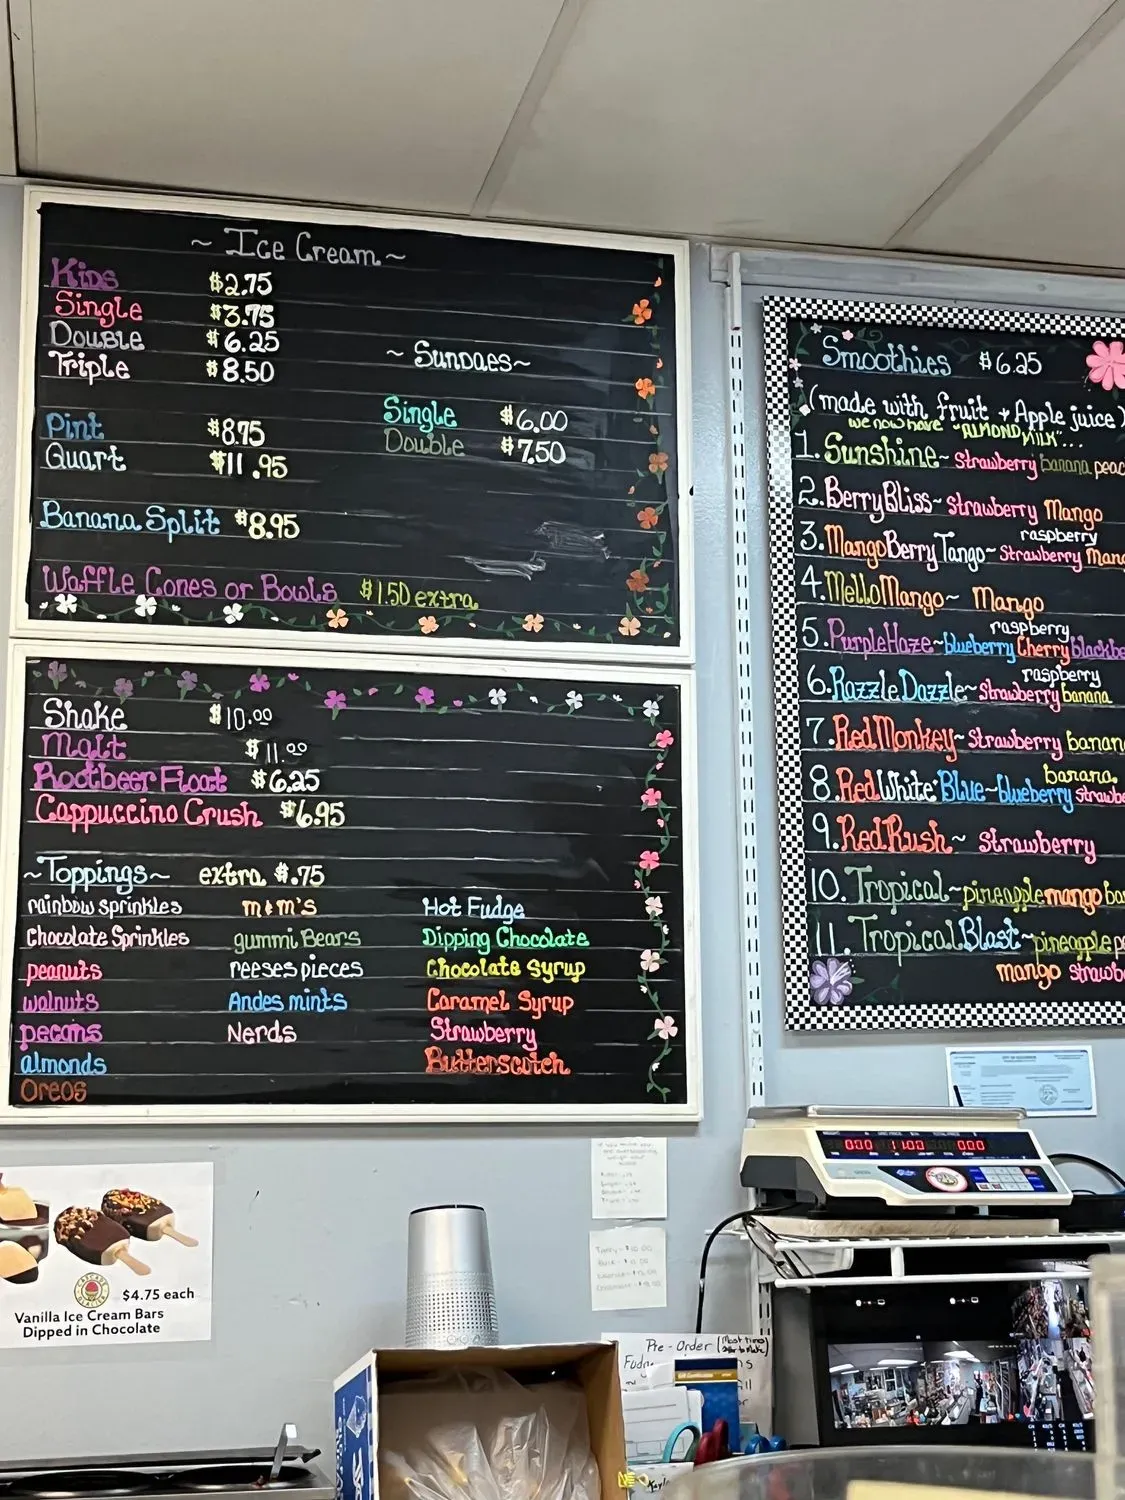 ~ Ice Cream ~
Kids $2.75
Single $3.75
Double $6.25
Triple $8.50
~ Sundaes ~
Single $6.00
Double $7.50
Pint $8.75
Quart $11.95
Banana Split $8.95
Waffle Cones or Bowls $1.50 extra
Shake $10.00
Malt $11.00
Rootbeer Float $6.25
Cappuccino Crush $6.95
~Toppings~ extra $.75
rainbow sprinkles m&m's Hot Fudge
Chocolate Sprinkles gummi Bears Dipping Chocolate
peanuts reeses pieces Chocolate Syrup
walnuts Andes mints Caramel Syrup
pecans Nerds Strawberry
almonds Butterscotch
Oreos
Smoothies $6.25
(made with fruit + Apple juice)
we now have "ALMOND MILK"...
1. Sunshine~ Strawberry banana peac
2. BerryBliss~ Strawberry Mango
raspberry
3. MangoBerryTango~ Strawberry Mang
4. MelloMango~ Mango
raspberry
5. PurpleHaze~blueberry Cherry blackbe
raspberry
6. Razzle Dazzle~ Strawberry banana
7. RedMonkey~ Strawberry banan
banana
8. RedWhite·Blue~blueberry strawbe
9. RedRush~ Strawberry
10. Tropical~pineapple mango ba
11. TropicalBlast~pineapple pe
mango strawb
0.00 11.00 0.00
$4.75 each
Vanilla Ice Cream Bars
Dipped in Chocolate
Pre-Order (Most times
Fudge